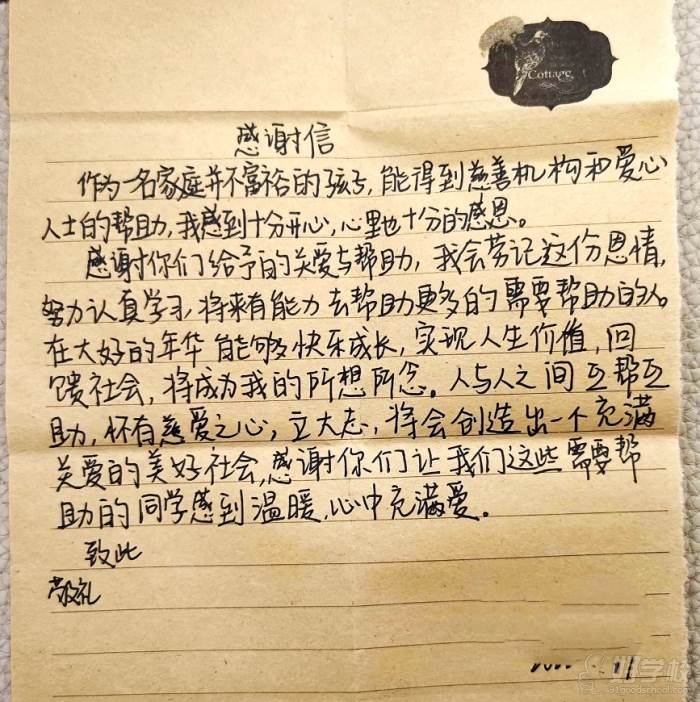 Cottage
感谢信
作为一名家庭并不富裕的孩子,能得到慈善机构和爱心
人士的帮助,我感到十分开心,心里也十分的感恩。
感谢你们给予的关爱与帮助,我会劳记这份恩情,
努力认真学习,将来有能力去帮助更多的需要帮助的人。
在大好的年华能够快乐成长,实现人生价值,回
馈社会,将成为我的所想所念。人与人之间互帮互
助,怀有慈爱之心,立大志,将会创造出一个充满
关爱的美好社会,感谢你们让我们这些需要帮
助的同学感到温暖,心中充满爱。
致此
敬礼
好学校
91goodschool.com